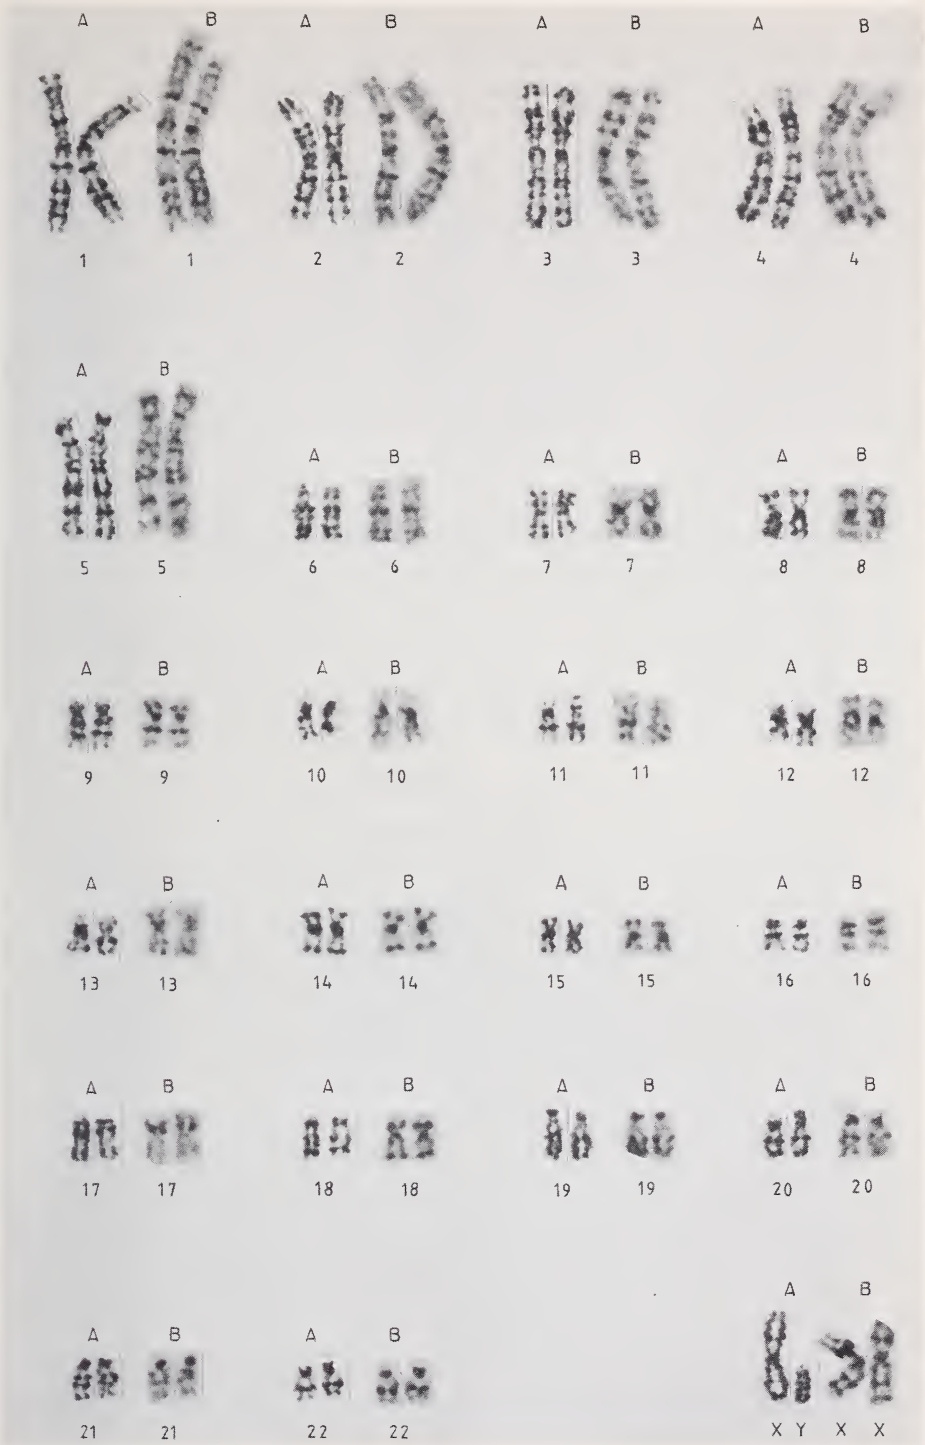 A B A B A B A B
1 1 2 2 3 3 4 4
A B
A B A B A B
5 5 6 6 7 7 8 8
A B A B A B A B
9 9 10 10 11 11 12 12
A B A B A B A B
13 13 14 14 15 15 16 16
A B A B A B A B
17 17 18 18 19 19 20 20
A B
A B A B
21 21 22 22 X Y X X